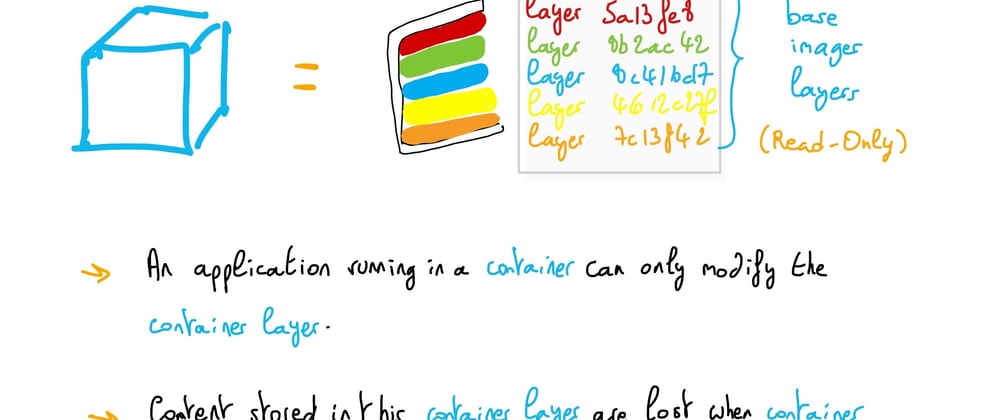 layer 5a13fe8
layer 8b2ac42
layer 8c41bd7
layer 4612c27f
layer 7c13f42
base
imager
layers
(Read-Only)
→ An application running in a container can only modify the
container layer.
→ Content stored in this container layer are lost when container